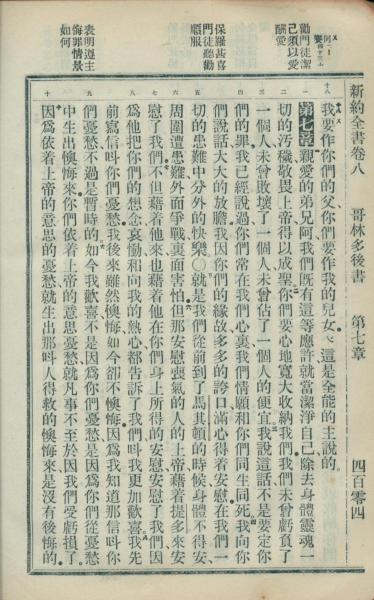 新約全書卷八　哥林多後書　第七章　四百零四
勸門徒潔
己須以愛
酬愛
保羅甚喜
門徒聽勸
順服
表明遵主
悔罪情景
如何
十八
我要作你們的父你們要作我的兒女、這是全能的主說的。
第七章 親愛的弟兄阿我們既有這等應許就當潔淨自己除去身體靈魂一
切的污穢敬畏上帝得以成聖你們要心地寬大收納我們我們未曾虧負了
一個人未曾敗壞了一個人未曾佔了一個人的便宜我說這話不是要定你
們的罪我已經說過你們常在我們心裏我們情願和你們同生同死我向你
們說話大大的放膽我因你們的緣故多多的誇口滿心得着安慰在我們一
切的患難中分外的快樂〇就是我們從前到了馬其頓的時候身體不得安、
周圍遭患難外面爭戰裏面害怕但那安慰喪氣的人的上帝藉着提多來安
慰了我們不但藉着他來也藉着他在你們身上所得的安慰安慰了我們因
爲他把你們的想念哀慟和向我的熱心都告訴了我們叫我更加歡喜我先
前寫信叫你們憂愁我後來雖然懊悔如今卻不懊悔因爲我知道那信叫你
們憂愁不過是暫時的如今我歡喜不是因爲你們憂愁是因爲你們從憂愁
中生出懊悔來你們依着上帝的意思憂愁就凡事不至於因我們受虧損了。
因爲依着上帝的意思的憂愁就生出那叫人得救的懊悔來是沒有後悔的、